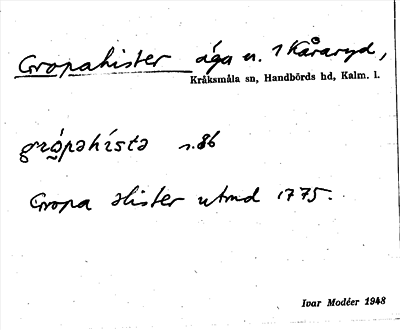 Gropahister äga n. 1 Kåraryd,
Kråksmåla sn, Handbörds hd, Kalm. l.
s. 86
Gropa Hister utmd 1775.
Ivar Modéer 1948